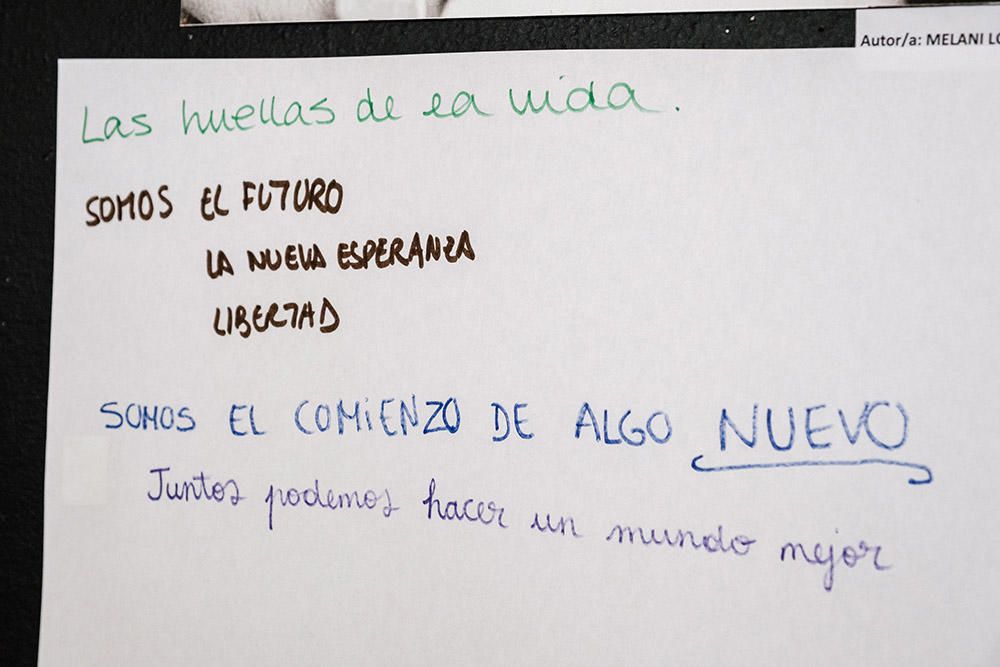 Autor/a: MELANI
Las huellas de la vida.
SOMOS EL FUTURO
LA NUEVA ESPERANZA
LIBERTAD
SOMOS EL COMIENZO DE ALGO NUEVO
Juntos podemos hacer un mundo mejor